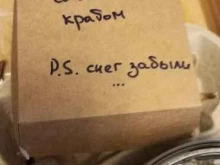 крабом
P.S. снег забыли
...